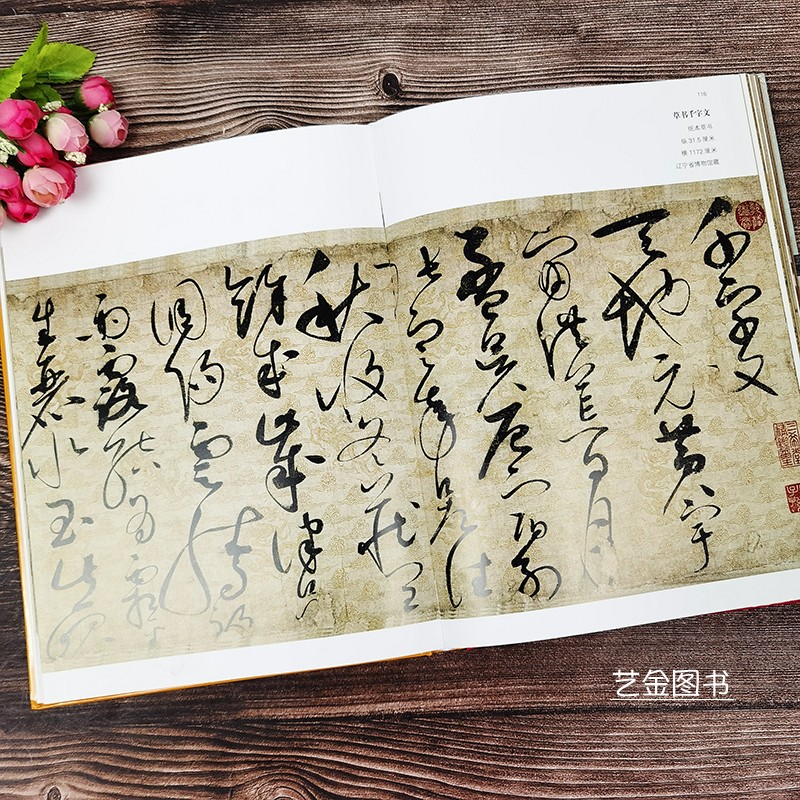 116
草书千字文
纸本草书
纵 31.5 厘米
横 1172 厘米
辽宁省博物馆藏
千字文
天地元黄宇
宙洪荒日月
盈昃辰宿列
張寒来暑往
秋收冬藏閏
餘成歲律呂
調陽雲騰致
雨露結為霜金
生麗水玉出崑
艺金图书